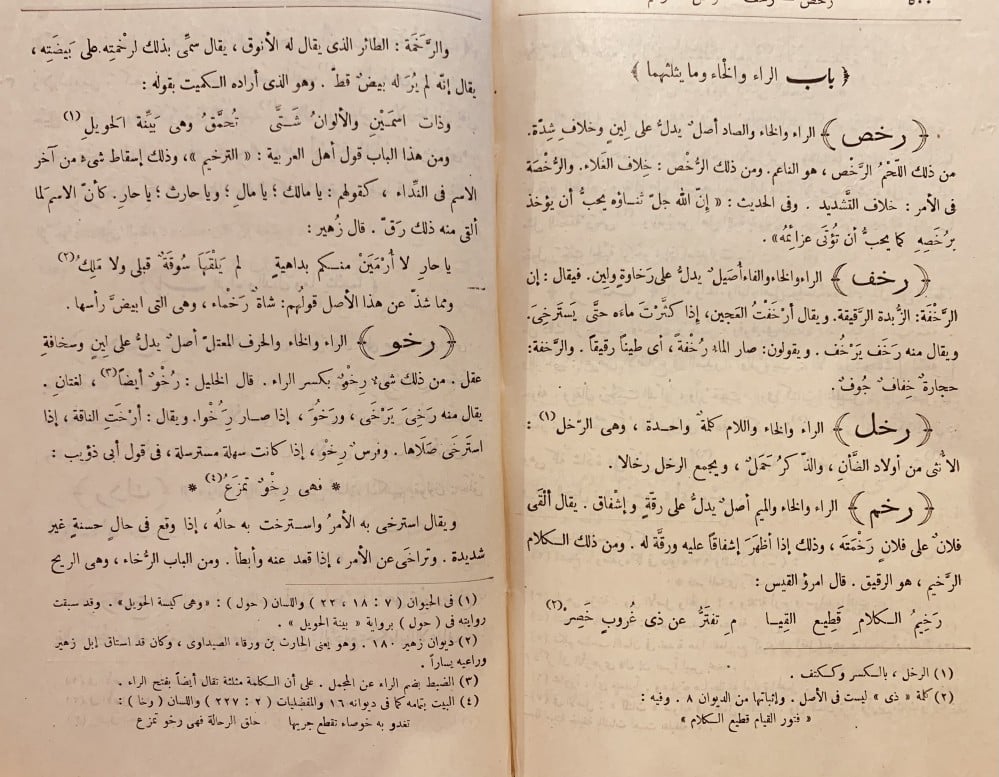 ٥٠٠
﴿ باب الراء والخاء وما يثلثهما ﴾
﴿ رخص ﴾ الراء والخاء والصاد أصلٌ يدلُّ على لِينٍ وخلافِ شِدّة.
من ذلك اللّحْمُ الرَّخْص ، هو الناعم. ومن ذلك الرُّخْص : خِلاف الغَلاء. والرُّخْصَة
فى الأمر : خلاف التَّشديد . وفى الحديث : « إنّ الله جلّ ثناؤه يحبُّ أن يؤخَذ
برُخَصِهِ كما يحبُّ أن تُؤتَى عزائمُه» .
﴿ رخف ﴾ الراء والخاء والفاء أُصَيلٌ يدلُّ على رَخاوةٍ ولين. فيقال : إن
الرَّخْفَة: الزُّبدة الرَّقيقة. ويقال أرْخَفْتُ العَجين، إذا كثَّرْتَ ماءَه حتَّى يَستَرخِىَ.
ويقال منه رَخَف يَرْخُف . ويقولون: صار الماء رُخْفةً، أى طيناً رقيقاً . والرَّخفة:
حجارةٌ خِفافٌ جُوفٌ.
﴿ رخل ﴾ الراء والخاء واللام كلمةٌ واحدة ، وهى الرّخل(١) :
الأُنثى من أولاد الضَّأن، والذَّكرُ حَمَلٌ ، ويجمع الرخل رخالا .
﴿ رخم ﴾ الراء والخاء والميم أصلٌ يدلُّ على رقّةٍ وإشفاق . يقال ألْقَى
فلانٌ على فلانٍ رَخْمَتَه ، وذلك إذا أظهَرَ إشفاقاً عليه ورقَّة له . ومن ذلك الكلام
الرَّخيم ، هو الرقيق . قال امرؤ القيس :
رَخِيمُ الكلامِ قَطِيع القِيـا مِ تفتَرُّ عن ذى غُروبٍ خَصِرْ(٢)
(١) الرخل ، بالكسر وككتف .
(٢) كلمة « ذى » ليست فى الأصل . وإثباتها من الديوان ٨ . وفيه :
« فتور القيام قطيع الكلام »
والرَّخَمَة : الطائر الذى يقال له الأنوق ، يقال سمِّى بذلك لرخْمتِه على بَيضَتِه ،
يقال إنّه لم يُرَ له بيضٌ قطّ . وهو الذى أراده الكميت بقوله :
وذات اسمَيْنِ والألوانُ شَتَّى تُحمَّقُ وهى بَيِّنة الحَويلِ(١)
ومن هذا الباب قول أهل العربية : « الترخيم »، وذلك إسقاط شىءٍ من آخر
الاسم فى النِّداء ، كقولهم : يا مالك ؛ يا مالِ ؛ ويا حارث ؛ يا حارِ . كأنّ الاسمَ لما
ألقى منه ذلك رَقّ. قال زُهير :
يا حارِ لا أُرْمَيَنْ منكم بداهيةٍ لم يَلقَهَا سُوقَةٌ قبلى ولا مَلِكُ(٢)
ومما شذّ عن هذا الأصل قولُهم: شاةٌ رَخْماء ، وهى التى ابيضَّ رأسها.
﴿ رخو ﴾ الراء والخاء والحرف المعتلّ أصلٌ يدلُّ على لينٍ وسخافةِ
عقل . من ذلك شىءٌ رِخْوٌ بكسر الراء . قال الخليل : رُخْوٌ أيضاً(٣) ، لغتان .
يقال منه رَخِىَ يَرْخَى ، ورَخُوَ ، إذا صار رَِخْوا . ويقال : أرْخَتِ الناقة ، إذا
استرخَى صَلَاها . وفرسٌ رِخْو ، إذا كانت سهلة مسترسلة ، فى قول أبى ذؤيب :
* فهى رِخْوٌ تمزَعُ(٤) *
ويقال استرخى به الأمرُ واسترخت به حالُه ، إذا وقع فى حالٍ حسنةٍ غير
شديدة . وتراخَى عن الأمر ، إذا قعد عنه وأبطأ . ومن الباب الرُّخاء ، وهى الريح
(١) فى الحيوان ( ٧ : ١٨ ، ٢٢ ) واللسان ( حول ) : «وهى كيسة الحويل» . وقد سبقت
روايته فى ( حول ) برواية « بينة الحويل » .
(٢) ديوان زهير ١٨٠ . وهو يعنى الحارث بن ورقاء الصيداوى ، وكان قد استاق إبل زهير
وراعيه يساراً .
(٣) الضبط بضم الراء عن المجمل . على أن الكلمة مثلثة تقال أيضاً بفتح الراء .
(٤) البيت بتمامه كما فى ديوانه ١٦ والمفضليات ( ٢ : ٢٢٧ ) واللسان ( رخا ) :
تغدو به خوصاء تقطع جريها حلق الرحالة فهى رخو تمزع